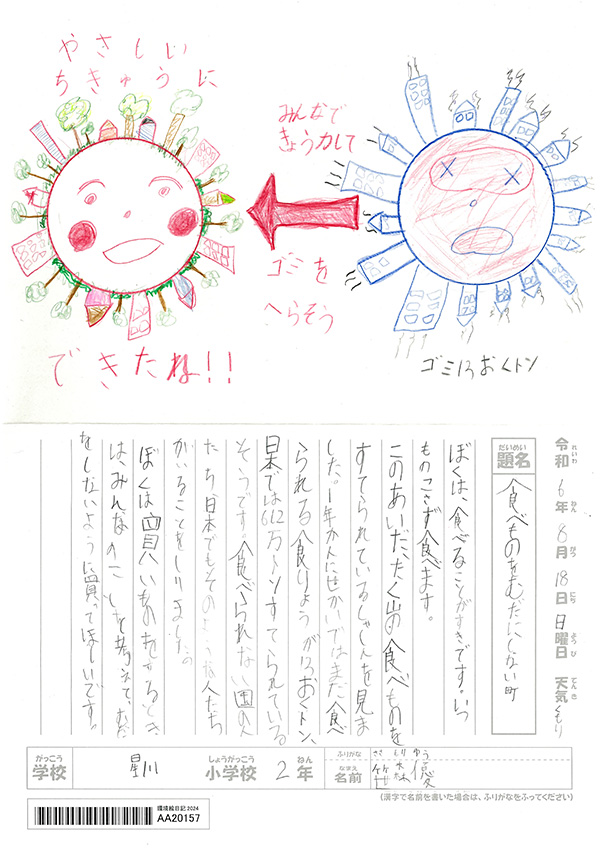 やさしい
ちきゅうに
みんなで
きょう力して
ゴミを
へらそう
できたね!!
ゴミ13おくトン
令和6年8月18日日曜日 天気くもり
れいわ ねん がつ にち にち ようび てんき
だいめい
題名
食べものをむだにしない町
ぼくは、食べることがすきです。いつ
ものこさず食べます。
このあいだ、たく山の食べものを
すてられているしゃしんを見ま
した。1年かんにせかいではまだ食べ
られる食りょうが13おくトン、
日本では612万トンすてられている
そうです。食べられない国の人
たち、日本でもそのような人たち
がいることをしりました。
ぼくは買いものをするとき
は、みんなのことを考えて、むだ
をしないように買ってほしいです。
がっこう
学校
星川
しょうがっこう
小学校
2
ねん
年
ふりがな
ささ もり ゆう
なまえ
名前
笹森優
(漢字で名前を書いた場合は、ふりがなをふってください)
環境絵日記2024
AA20157